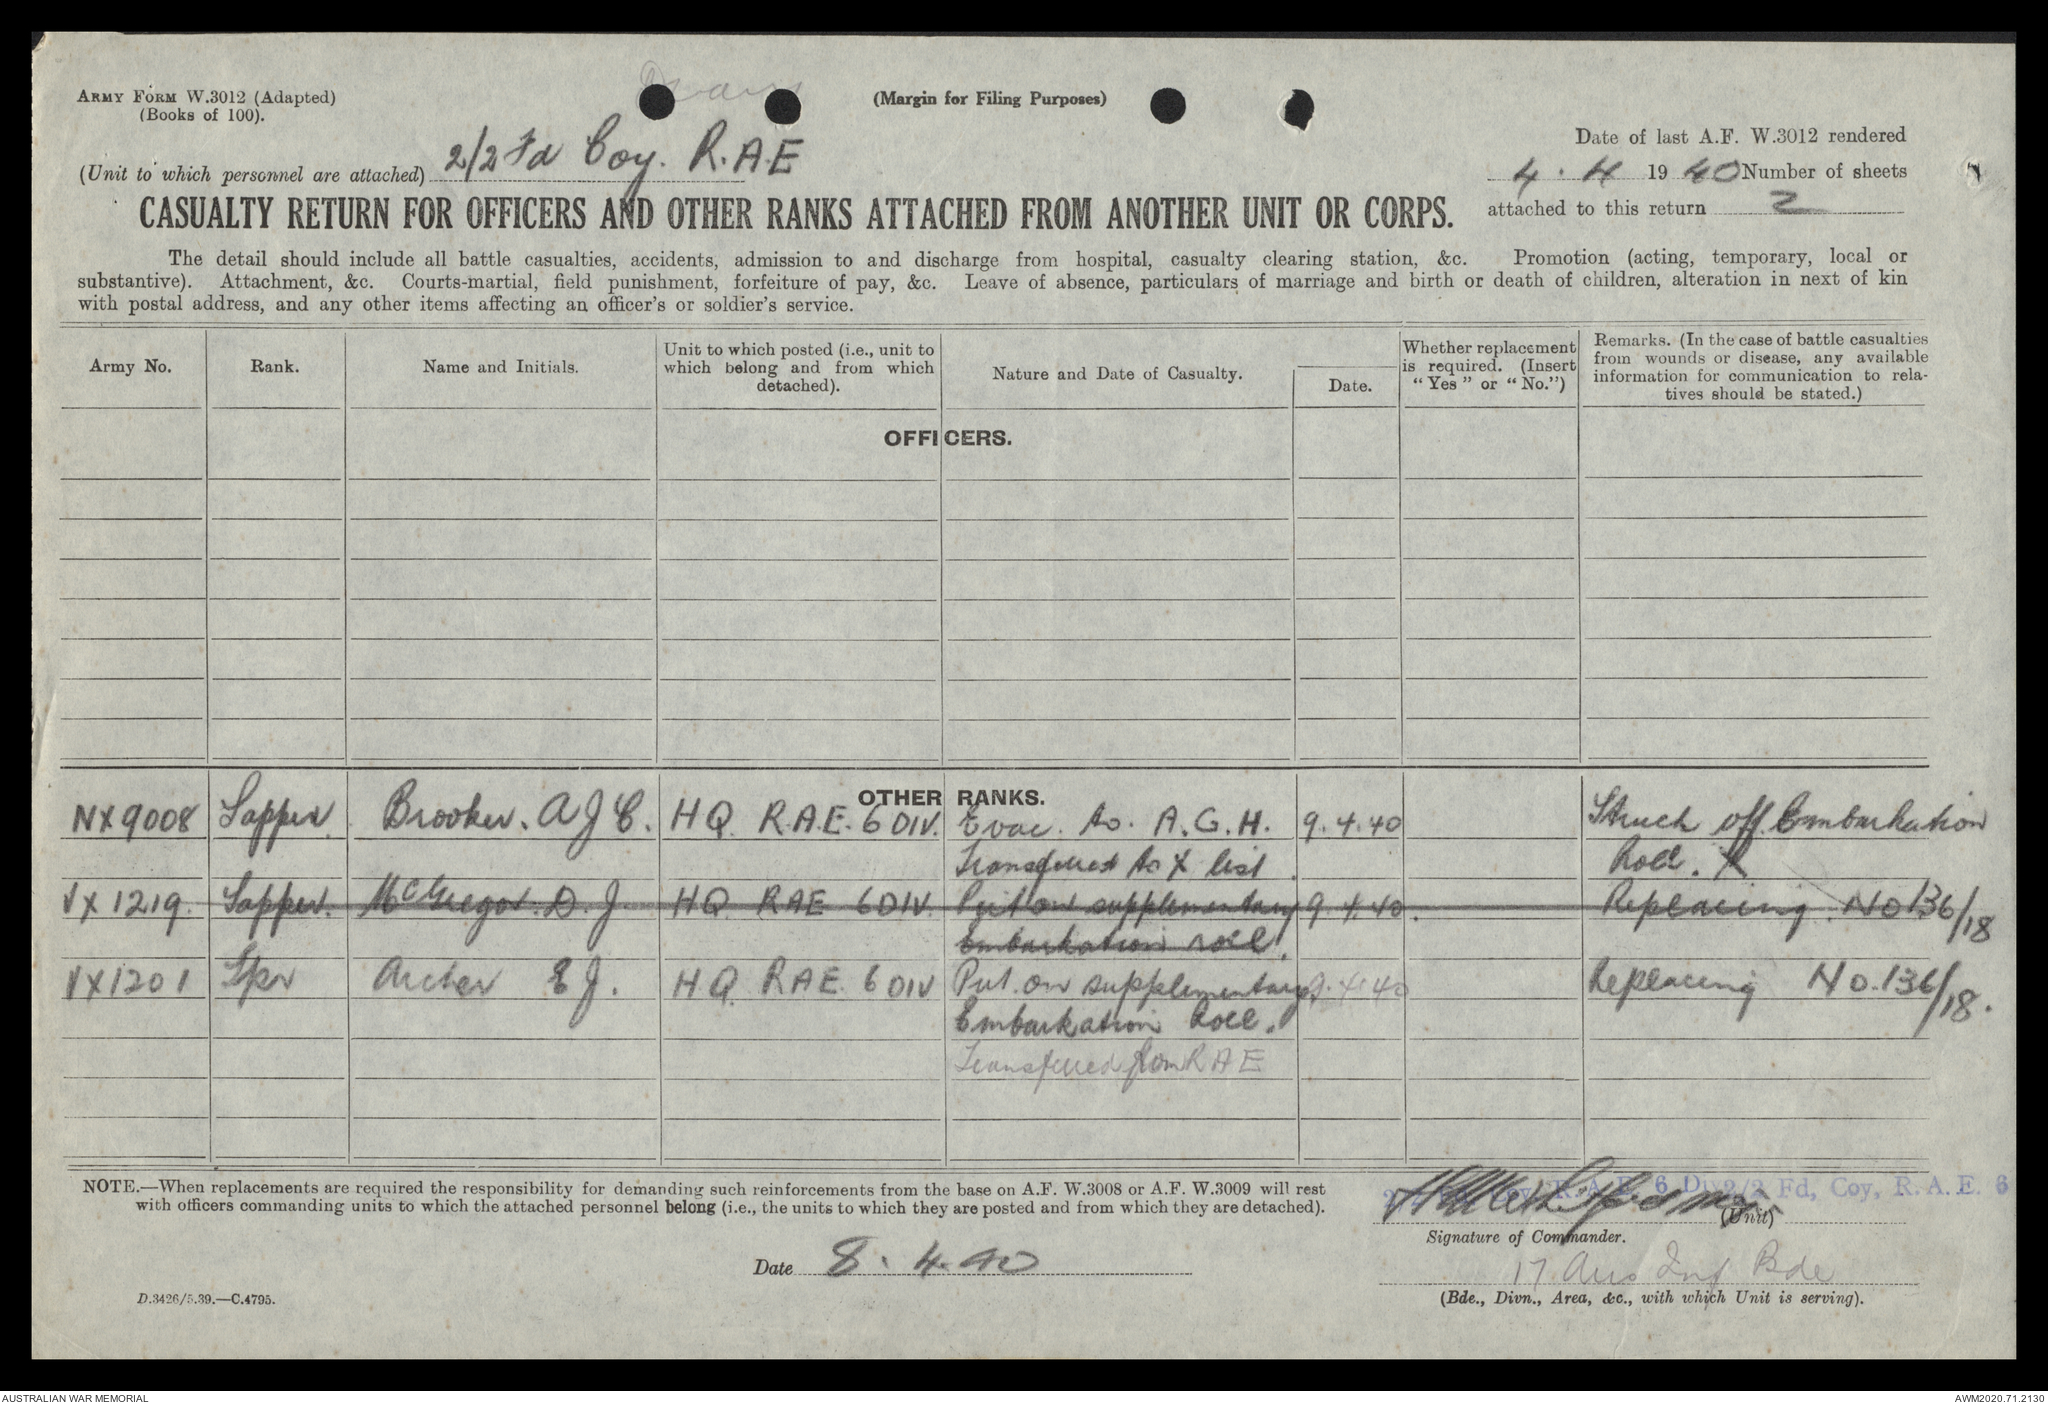 ARMY FORM W.3012 (Adapted)
(Books of 100).
(Margin for Filing Purposes)
Date of last A.F. W.3012 rendered
(Unit to which personnel are attached) 2/2 Fd Coy. R.A.E
4. 4 1940 Number of sheets
attached to this return 2
CASUALTY RETURN FOR OFFICERS AND OTHER RANKS ATTACHED FROM ANOTHER UNIT OR CORPS.
The detail should include all battle casualties, accidents, admission to and discharge from hospital, casualty clearing station, &c. Promotion (acting, temporary, local or
substantive). Attachment, &c. Courts-martial, field punishment, forfeiture of pay, &c. Leave of absence, particulars of marriage and birth or death of children, alteration in next of kin
with postal address, and any other items affecting an officer's or soldier's service.
Army No.
Rank.
Name and Initials.
Unit to which posted (i.e., unit to
which belong and from which
detached).
Nature and Date of Casualty.
Date.
Whether replacement
is required. (Insert
"Yes" or "No.")
Remarks. (In the case of battle casualties
from wounds or disease, any available
information for communication to rela-
tives should be stated.)
OFFICERS.
OTHER RANKS.
NX9008 Sapper Brooker. A J C. HQ R.A.E. 6 DIV. Evac. to. A.G.H. 9.4.40 Struck off Embarkation
Transferred to X list. Roll. X
VX1219. Sapper. McGregor. D. J. HQ RAE 6 DIV. Put on supplementary 9.4.40. Replacing No 136/18
Embarkation roll.
VX1201 Spr Archer E J. H.Q. RAE. 6 DIV Put on supplementary 9.4.40 Replacing No.136/18.
Embarkation Roll.
Transferred from RAE
NOTE.—When replacements are required the responsibility for demanding such reinforcements from the base on A.F. W.3008 or A.F. W.3009 will rest
with officers commanding units to which the attached personnel belong (i.e., the units to which they are posted and from which they are detached).
2/2 Fd, Coy, R.A.E. 6 Div
2/2 Fd, Coy, R.A.E. 6
(Unit)
Signature of Commander.
Date 8.4.40
17 Aus Inf Bde
(Bde., Divn., Area, &c., with which Unit is serving).
D.3426/5.39.—C.4795.
AUSTRALIAN WAR MEMORIAL
AWM2020.71.2130